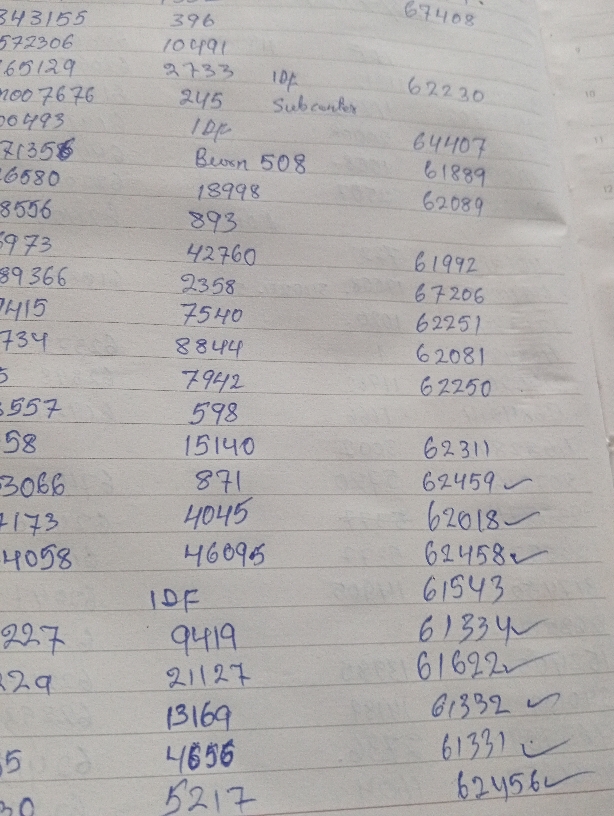 343155 396 67408
572306 10491
65129 2733 IDF 62230
007676 245 Subcenter
00493 IDF 64407
71356 508 61889
6580 18998 62089
8556 893
6973 42760 61992
89366 2358 67206
7415 7540 62251
734 8844 62081
5 7942 62250
3557 598
58 15140 62311
53066 871 62459 ✓
7173 4045 62018 ✓
4058 46095 62458 ✓
IDF 61543
227 9419 61334 ✓
229 21127 61622 ✓
13169 61332 ✓
5 4656 61331 ✓
30 5217 62456 ✓